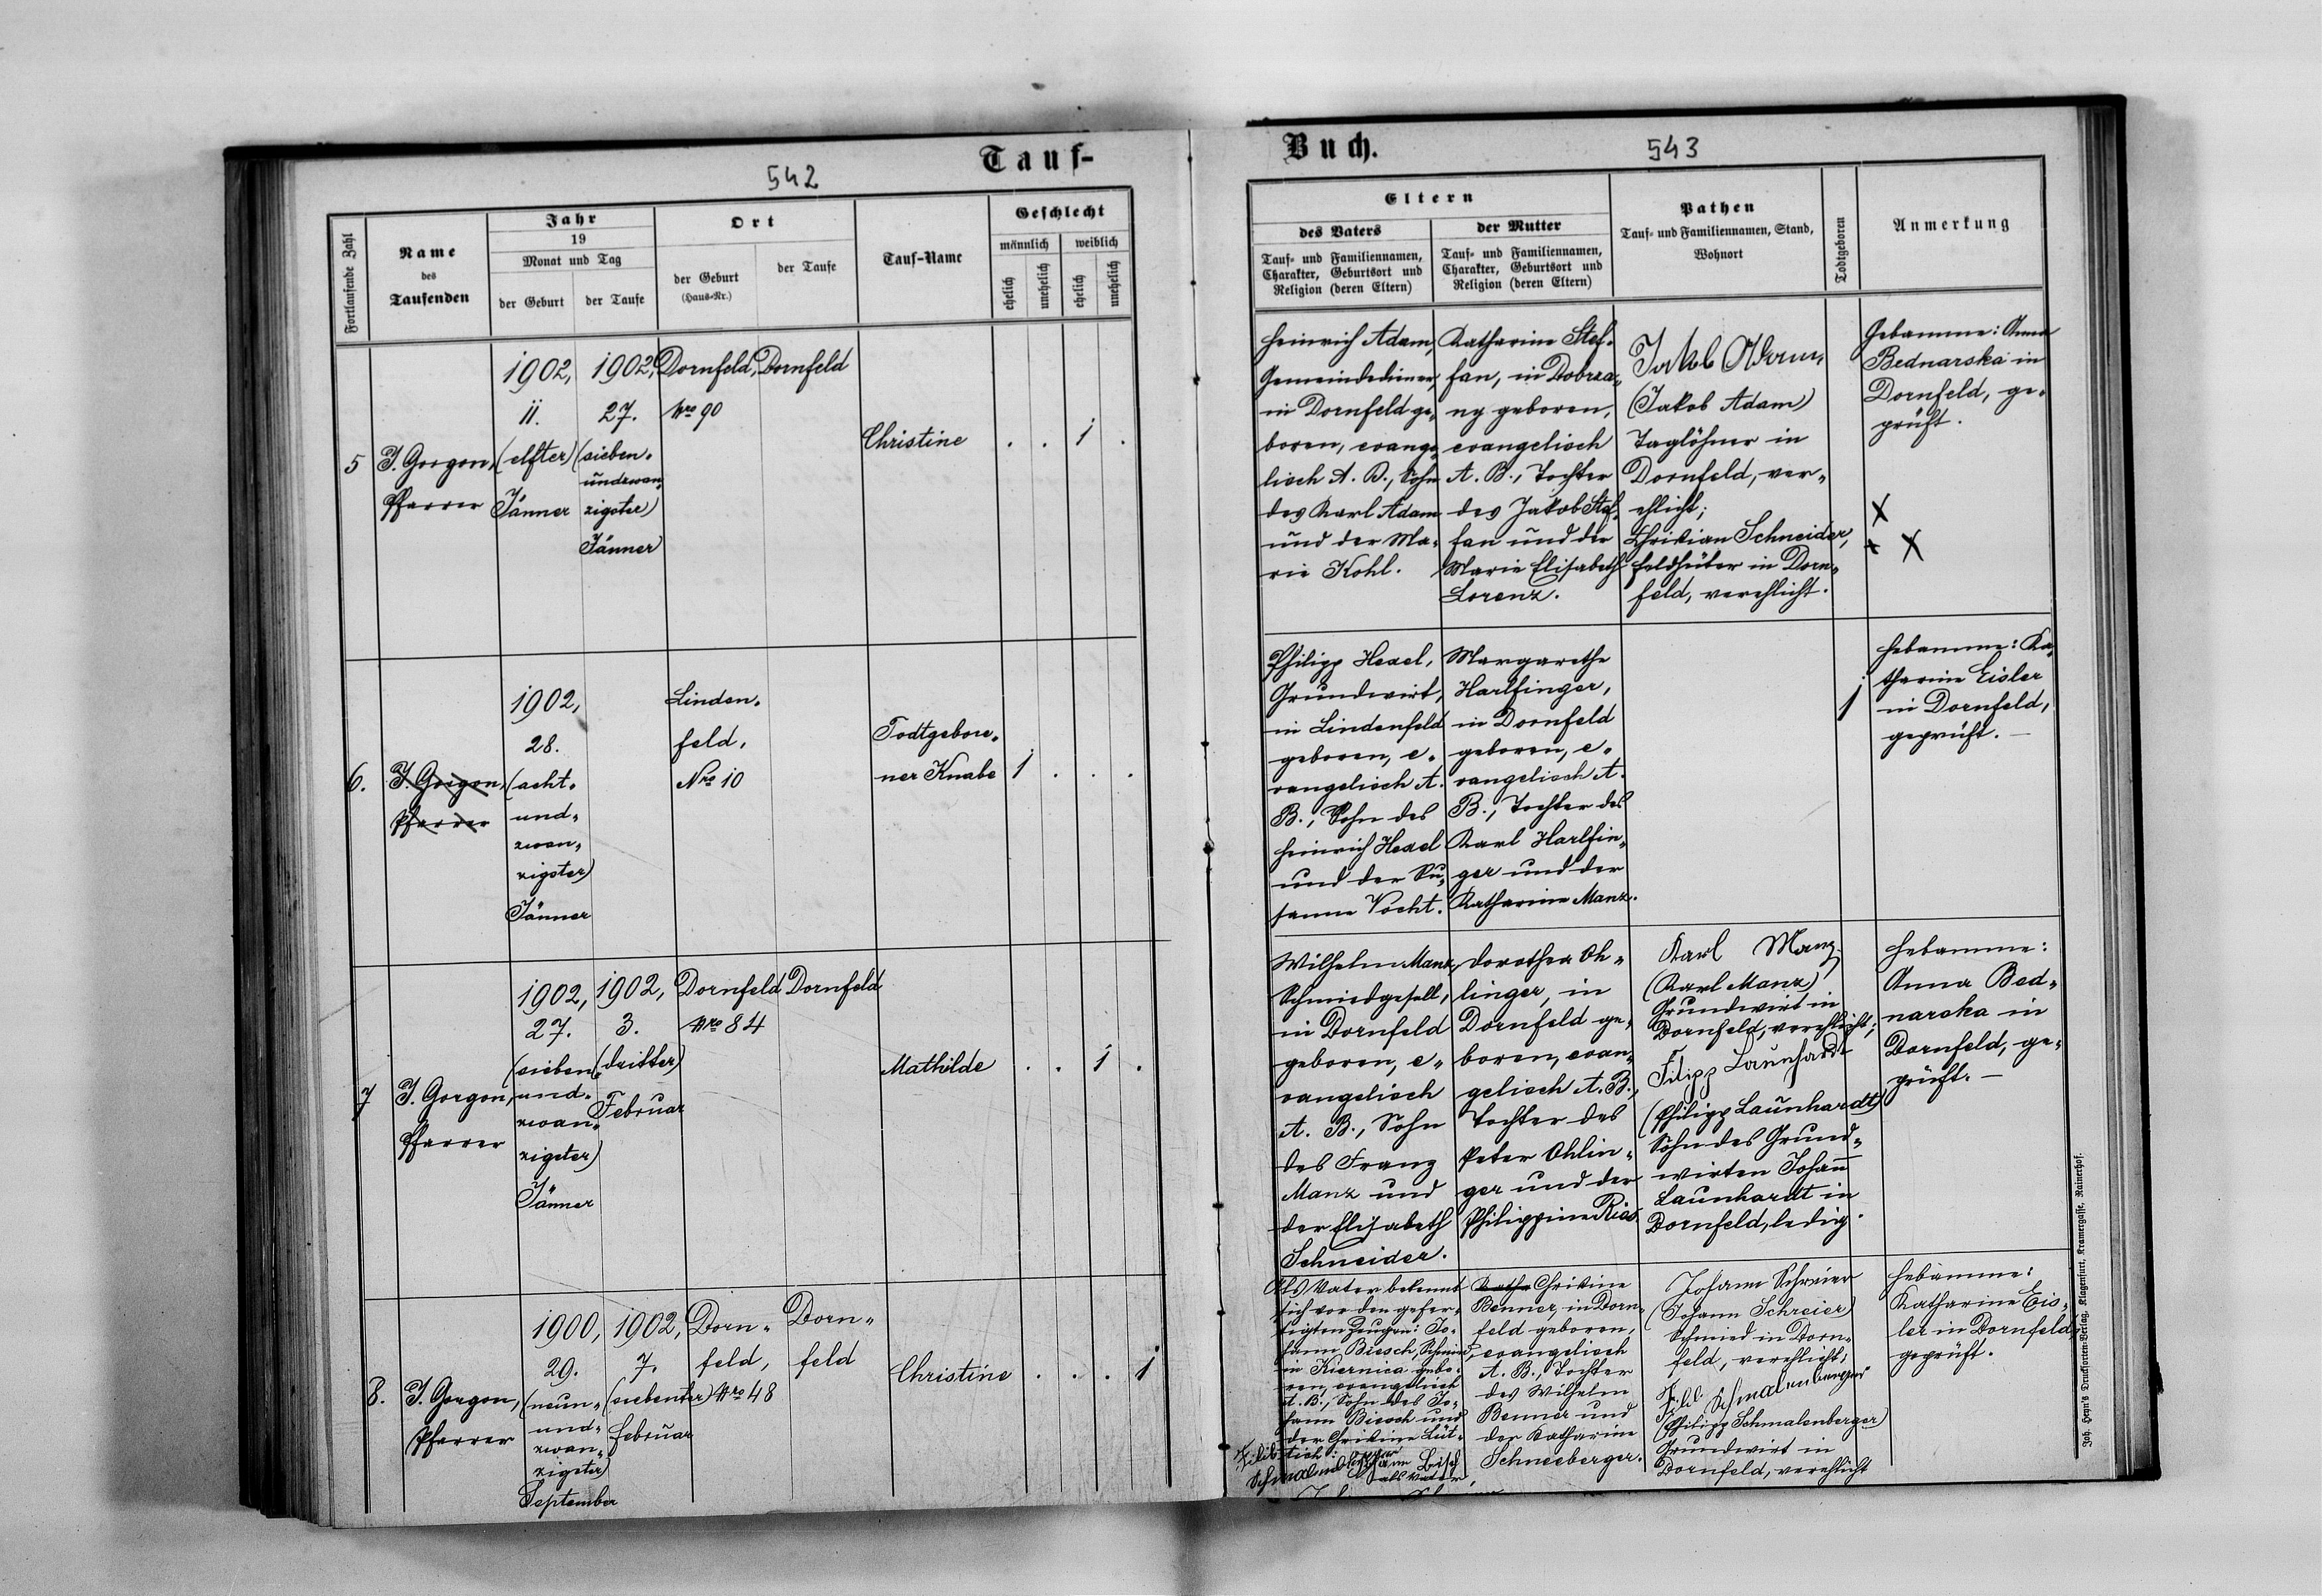 Tauf-
542
Fortlaufende Zahl
Name
des
Taufenden
Jahr
19
Monat und Tag
der Geburt
der Taufe
Ort
der Geburt
(Haus-Nr.)
der Taufe
Tauf-Name
Geschlecht
männlich
weiblich
ehelich
unehelich
ehelich
unehelich
5
J. Gorgon,
Pfarrer
1902,
11.
(elfter)
Jänner
1902,
27.
(sieben-
undzwan-
zigster)
Jänner
Dornfeld,
Nro 90
Dornfeld
Christine
. . 1 .
6.
J. Gorgon,
Pfarrer
1902,
28.
(acht-
und-
zwan-
zigster)
Jänner
Linden-
feld,
Nro 10
Todtgebore-
ner Knabe
1 . . .
7
J. Gorgon,
Pfarrer
1902,
27.
(sieben-
und-
zwan-
zigster)
Jänner
1902,
3.
(dritter)
Februar
Dornfeld
Nro 84
Dornfeld
Mathilde
. . 1 .
8.
J. Gorgon,
Pfarrer
1900,
29.
(neun-
und-
zwan-
zigster)
September
1902,
7.
(siebenter)
Februar
Dorn-
feld,
Nro 48
Dorn-
feld
Christine
. . . 1
Buch.
543
Eltern
des Vaters
Tauf- und Familiennamen,
Charakter, Geburtsort und
Religion (deren Eltern)
der Mutter
Tauf- und Familiennamen,
Charakter, Geburtsort und
Religion (deren Eltern)
Pathen
Tauf- und Familiennamen, Stand,
Wohnort
Todtgeboren
Anmerkung
Heinrich Adam,
Gemeindediener,
in Dornfeld ge-
boren, evange-
lisch A. B., Sohn
des Karl Adam
und der Ma-
rie Kohl.
Katharine Stef-
fan, in Dobrza-
ny geboren,
evangelisch
A. B., Tochter
des Jakob Stef-
fan und der
Marie Elisabeth
Lorenz.
Jakob Adam
(Jakob Adam)
Taglöhner in
Dornfeld, ver-
ehlicht;
Christian Schneider,
Feldhüter in Dorn-
feld, verehlicht.
Hebamme: Anna
Bednarska in
Dornfeld, ge-
prüft.
Philipp Hexel,
Grundwirt,
in Lindenfeld
geboren, e-
vangelisch A.
B., Sohn des
Heinrich Hexel
und der Su-
sanne Vocht.
Margarethe
Harlfinger,
in Dornfeld
geboren, e-
vangelisch A.
B., Tochter des
Karl Harlfin-
ger und der
Katharine Manz.
1
Hebamme: Ka-
tharine Eisler
in Dornfeld,
geprüft. —
Wilhelm Manz,
Schmiedgesell,
in Dornfeld
geboren, e-
vangelisch
A. B., Sohn
des Franz
Manz und
der Elisabeth
Schneider.
Dorothea Oh-
linger, in
Dornfeld ge-
boren, evan-
gelisch A. B.,
Tochter des
Peter Ohlin-
ger und der
Philippine Ries
Karl Manz
(Karl Manz)
Grundwirt in
Dornfeld, verehlicht;
Filipp Launhardt
(Philipp Launhardt)
Sohn des Grund-
wirten Johann
Launhardt in
Dornfeld, ledig.
Hebamme:
Anna Bed-
narska in
Dornfeld, ge-
prüft. —
Als Vater bekennt
sich vor den gefer-
tigten Zeugen: Jo-
hann Biesch, Schmied,
in Kiernica gebo-
ren, evangelisch
A. B., Sohn des Jo-
hann Biesch und
der Christine Lüt-
tich:
als Vater,
Christine
Benner, in Dorn-
feld geboren,
evangelisch
A. B., Tochter
des Wilhelm
Benner und
der Katharine
Schneeberger.
Johann Schreier
(Johann Schreier)
Schmied in Dorn-
feld, verehlicht;
Fili. Schmalenberger
(Philipp Schmalenberger)
Grundwirt in
Dornfeld, verehlicht
Hebamme:
Katharine Eis-
ler in Dornfeld,
geprüft.
Joh. Heyn's Drucksorten-Verlag, Klagenfurt, Kramergasse, Rainerhof.